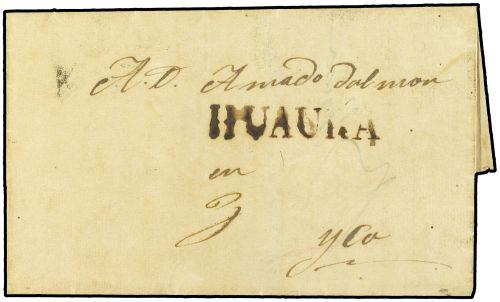 A. D. Amado Dalmon
HUAURA
en
yCa